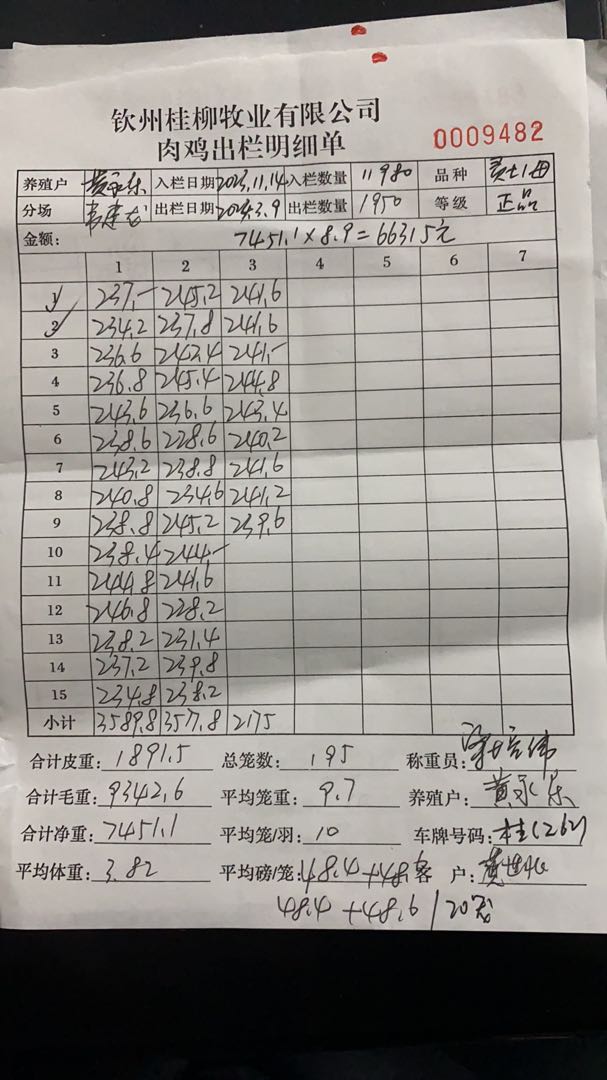 钦州桂柳牧业有限公司
肉鸡出栏明细单 0009482
养殖户 黄永乐 入栏日期 2023.11.14 入栏数量 11980 品种 黄土1母
分场 出栏日期 2024.3.9 出栏数量 1950 等级 正品
金额: 7451.1×8.9=66315元
1 2 3 4 5 6 7
1 237.- 245.2 241.6
2 234.2 237.8 241.6
3 236.6 242.4 241.-
4 236.8 245.4 244.8
5 243.6 236.6 243.4
6 238.6 228.6 240.2
7 243.2 238.8 241.6
8 240.8 234.6 241.2
9 238.8 245.2 239.6
10 238.4 244.-
11 244.8 241.6
12 246.8 228.2
13 238.2 231.4
14 237.2 239.8
15 234.8 238.2
小计 3589.8 357.8 2175
合计皮重: 1891.5 总笼数: 195 称重员:
合计毛重: 9342.6 平均笼重: 9.7 养殖户: 黄永乐
合计净重: 7451.1 平均笼/羽: 10 车牌号码: 桂(262)
平均体重: 3.82 平均磅/笼: 48.4+48.6 客 户:
48.4+48.6/20